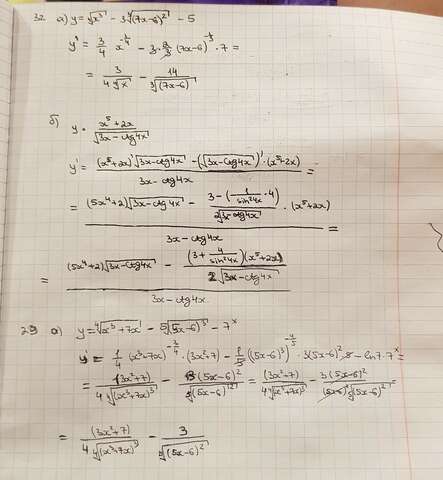 32 а) y=√x³ - 3∛(7x-6)² - 5
y' = 3/4 x^(-1/4) - 3·2/3 (7x-6)^(-1/3) · 7 =
= 3/(4 ⁴√x) - 14/∛(7x-6)
б) y = (x⁵+2x)/√(3x-ctg4x)
y' = ((x⁵+2x)'√(3x-ctg4x) - (√(3x-ctg4x))' · (x⁵+2x))/(3x-ctg4x) =
= ((5x⁴+2)√(3x-ctg4x) - (3-(1/sin²4x · 4))/(2√(3x-ctg4x)) · (x⁵+2x))/(3x-ctg4x) =
= ((5x⁴+2)√(3x-ctg4x) - ((3+4/sin²4x)(x⁵+2x))/(2√(3x-ctg4x)))/(3x-ctg4x)
29 а) y=⁴√(x³+7x) - ⁵√(5x-6)³ - 7ˣ
y' = 1/4 (x³+7x)^(-3/4) · (3x²+7) - 1/5 ((5x-6)³)^(-4/5) · 3(5x-6)² · 5 - ln7·7ˣ =
= (3x²+7)/(4 ⁴√(x³+7x)³) - 3(5x-6)²/⁵√(5x-6)¹² = (3x²+7)/(4 ⁴√(x³+7x)³) - 3(5x-6)²/((5x-6)² ⁵√(5x-6)²) =
= (3x²+7)/(4 ⁴√(x³+7x)³) - 3/⁵√(5x-6)²